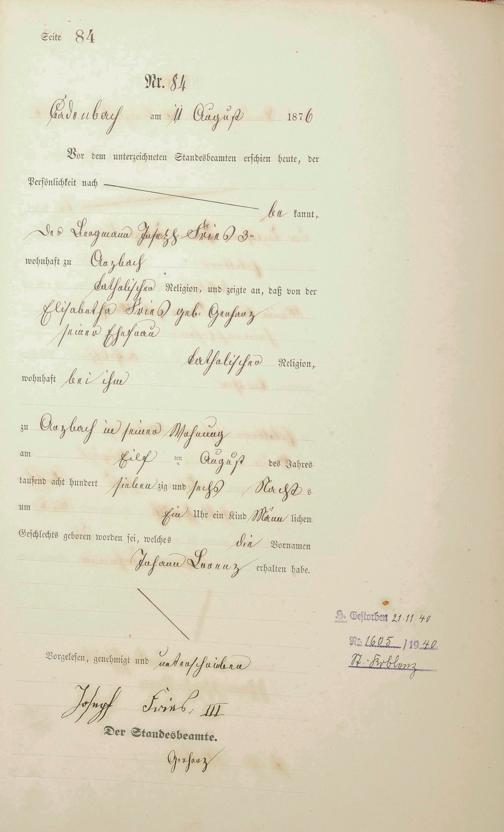 Seite 84
Nr. 84
Cadenbach am 11 August 1876
Vor dem unterzeichneten Standesbeamten erschien heute, der
Persönlichkeit nach
be kannt,
der Bergmann Joseph Fries 3-
wohnhaft zu Arzbach
katholischer Religion, und zeigte an, daß von der
Elisabetha Fries geb. Gerharz
seiner Ehefrau
katholischer Religion,
wohnhaft bei ihm
zu Arzbach in seiner Wohnung
am Eilf ten August des Jahres
tausend acht hundert sieben zig und sechs Nachts
um Ein Uhr ein Kind Männ lichen
Geschlechts geboren worden sei, welches die Vornamen
Johann Lorenz erhalten habe.
H. Gestorben 21.11.40
Nr. 1605 / 1940
St. Koblenz
Vorgelesen, genehmigt und unterschrieben
Joseph Fries III
Der Standesbeamte.
Gerharz